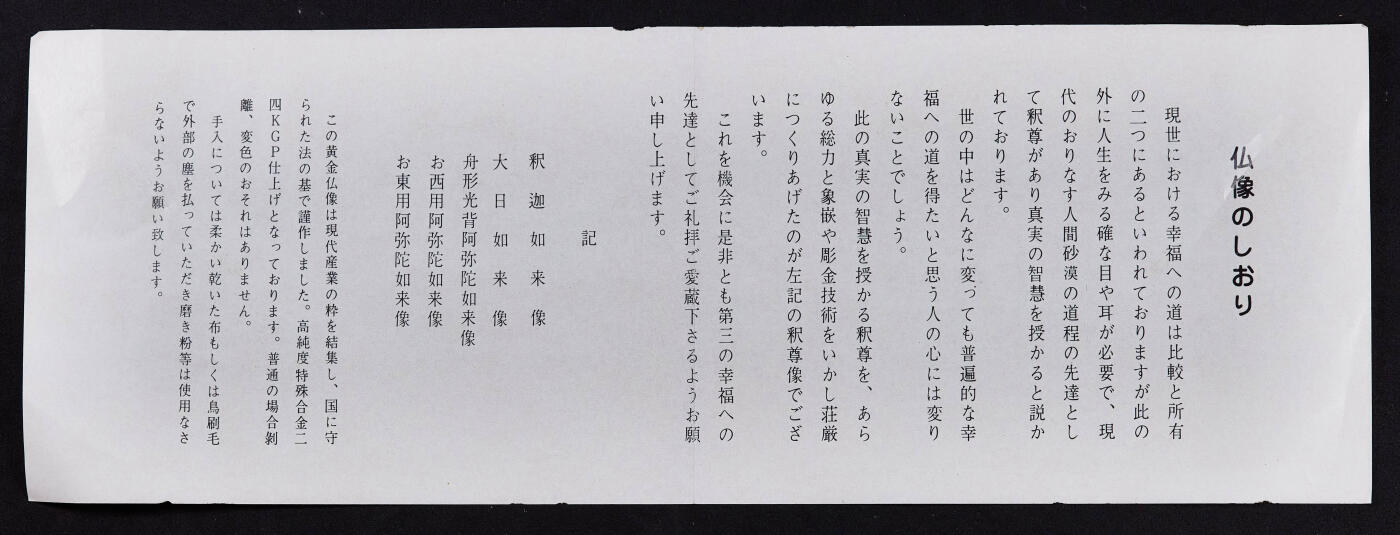 仏像のしおり
現世における幸福への道は比較と所有
の二つにあるといわれておりますが此の
外に人生をみる確な目や耳が必要で、現
代のおりなす人間砂漠の道程の先達とし
て釈尊があり真実の智慧を授かると説か
れております。
世の中はどんなに変っても普遍的な幸
福への道を得たいと思う人の心には変り
ないことでしょう。
此の真実の智慧を授かる釈尊を、あら
ゆる総力と象嵌や彫金技術をいかし荘厳
につくりあげたのが左記の釈尊像でござ
います。
これを機会に是非とも第三の幸福への
先達としてご礼拝ご愛蔵下さるようお願
い申し上げます。
記
釈迦如来像
大日如来像
舟形光背阿弥陀如来像
お西用阿弥陀如来像
お東用阿弥陀如来像
この黄金仏像は現代産業の粋を結集し、国に守
られた法の基で謹作しました。高純度特殊合金二
四KGP仕上げとなっております。普通の場合剝
離、変色のおそれはありません。
手入については柔かい乾いた布もしくは鳥刷毛
で外部の塵を払っていただき磨き粉等は使用なさ
らないようお願い致します。